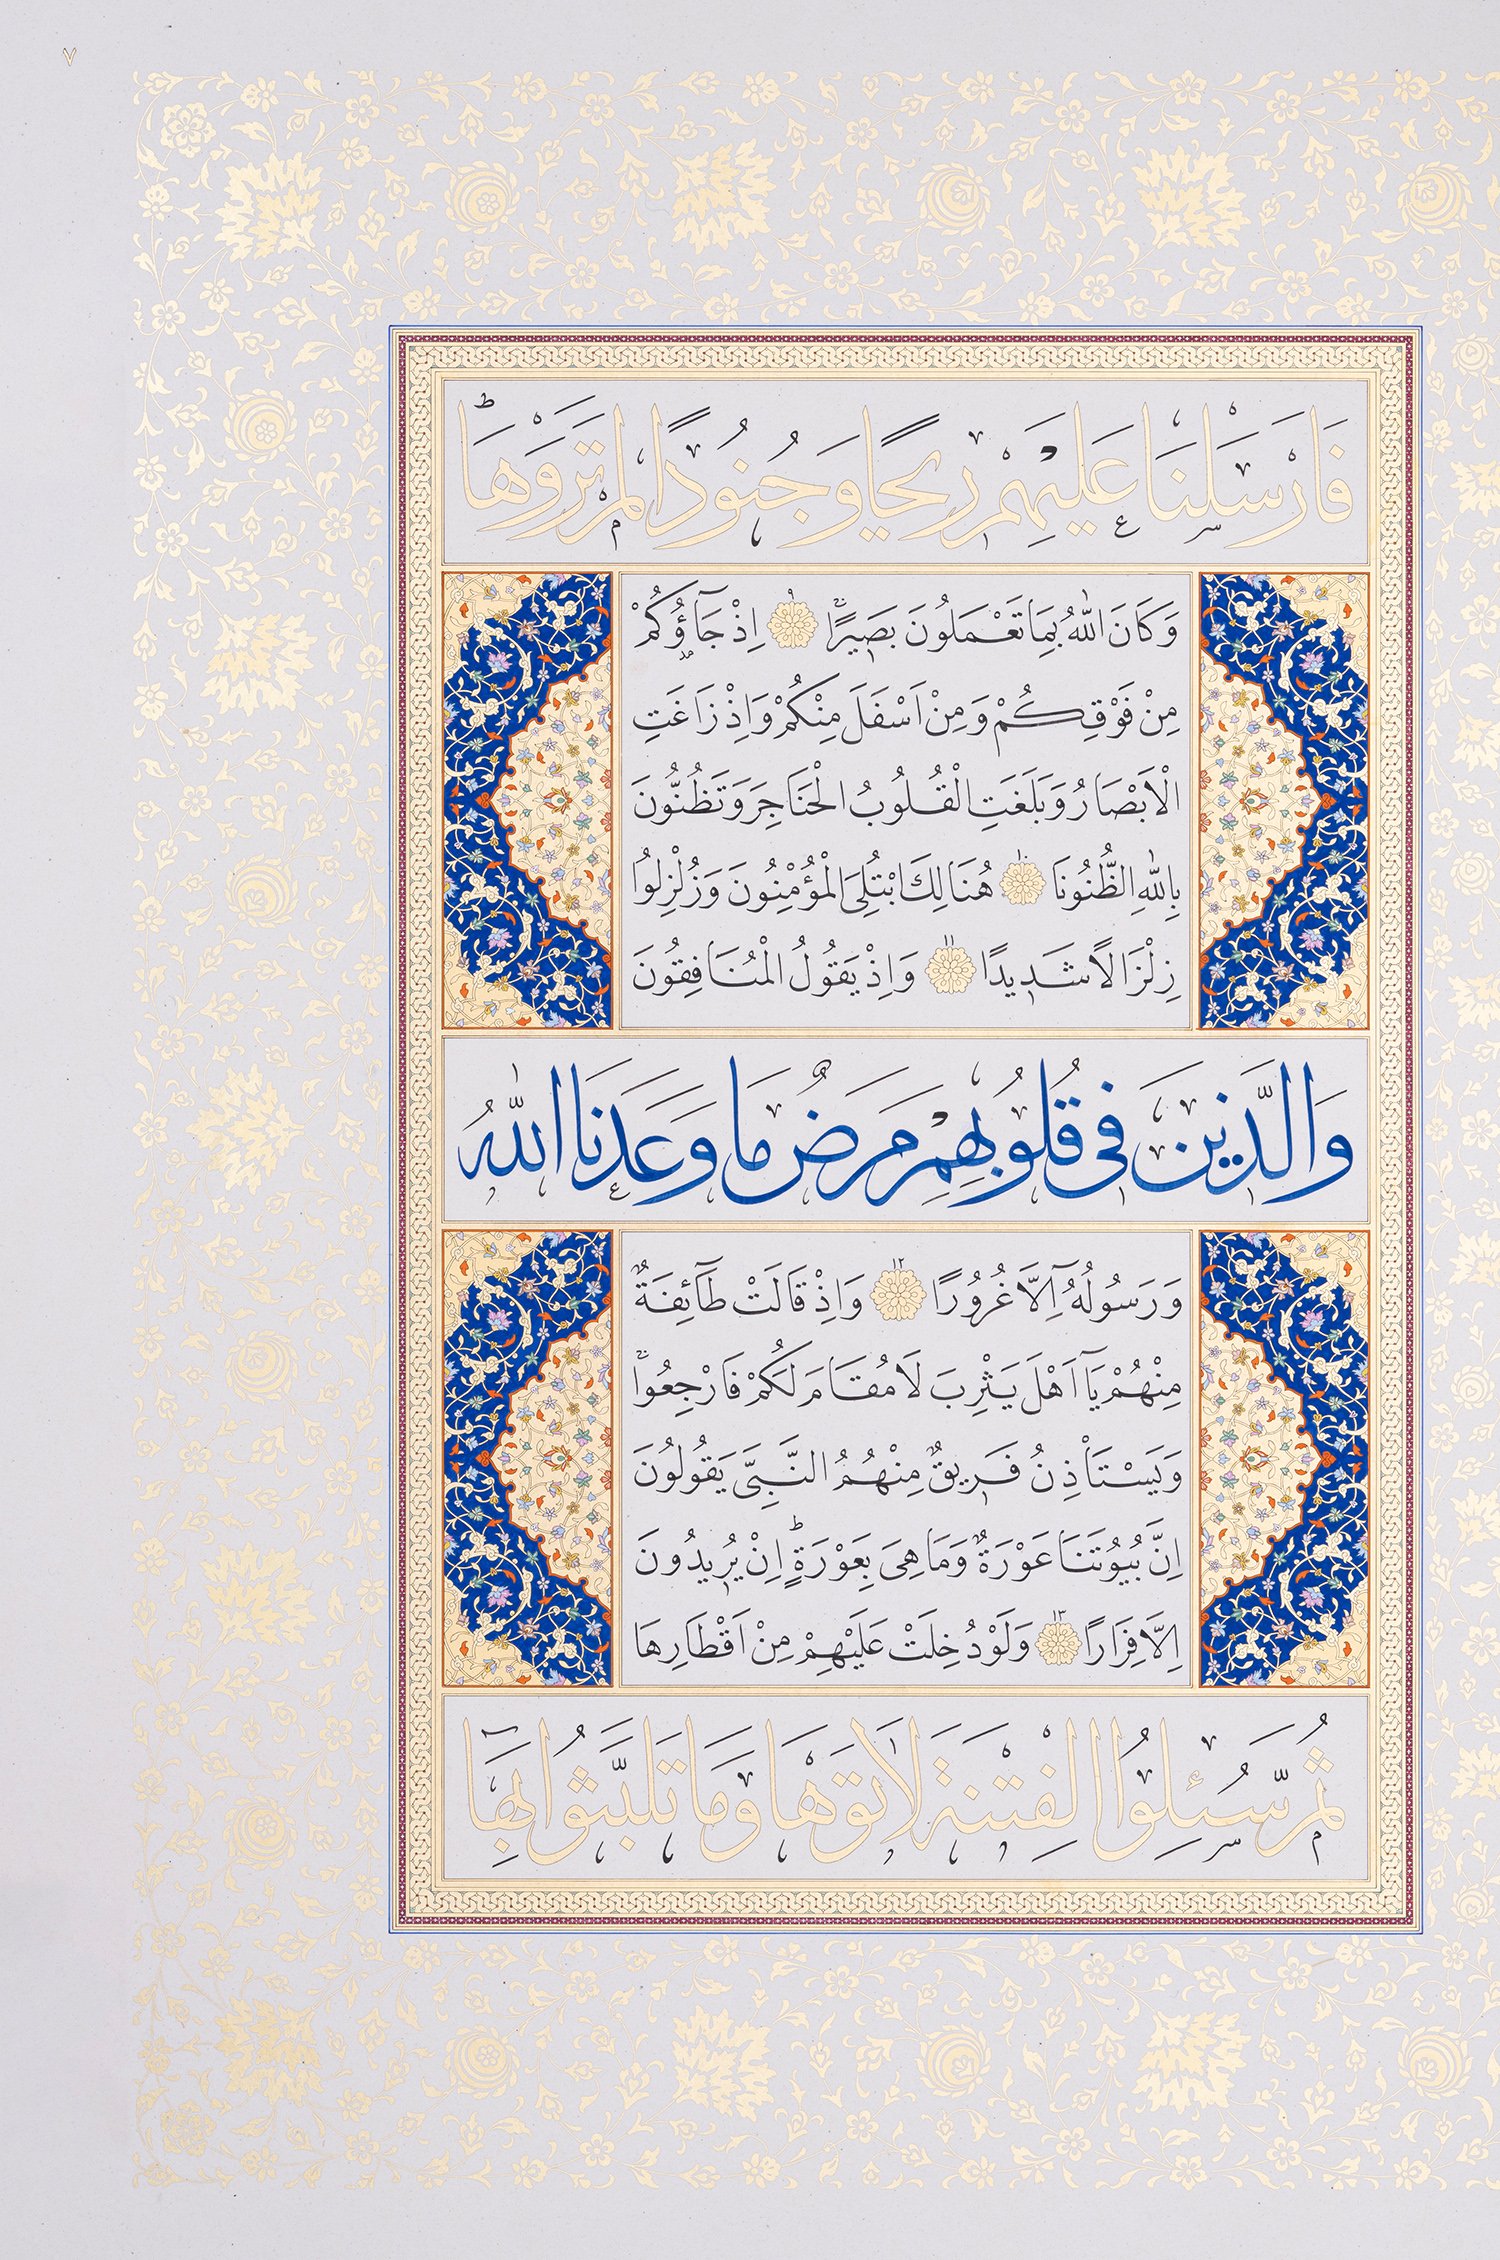 ٧
فَاَرْسَلْنَا عَلَيْهِمْ رٖيحًا وَجُنُودًا لَمْ تَرَوْهَاۜ
وَكَانَ اللّٰهُ بِمَا تَعْمَلُونَ بَصٖيرًاۚ ٩ اِذْ جَٓاؤُ۫كُمْ
مِنْ فَوْقِكُمْ وَمِنْ اَسْفَلَ مِنْكُمْ وَاِذْ زَاغَتِ
الْاَبْصَارُ وَبَلَغَتِ الْقُلُوبُ الْحَنَاجِرَ وَتَظُنُّونَ
بِاللّٰهِ الظُّنُونَا ١٠ هُنَالِكَ ابْتُلِيَ الْمُؤْمِنُونَ وَزُلْزِلُوا
زِلْزَالًا شَدٖيدًا ١١ وَاِذْ يَقُولُ الْمُنَافِقُونَ
وَالَّذٖينَ فٖي قُلُوبِهِمْ مَرَضٌ مَا وَعَدَنَا اللّٰهُ
وَرَسُولُهُٓ اِلَّا غُرُورًا ١٢ وَاِذْ قَالَتْ طَٓائِفَةٌ
مِنْهُمْ يَٓا اَهْلَ يَثْرِبَ لَا مُقَامَ لَكُمْ فَارْجِعُواۚ
وَيَسْتَأْذِنُ فَرٖيقٌ مِنْهُمُ النَّبِيَّ يَقُولُونَ
اِنَّ بُيُوتَنَا عَوْرَةٌ وَمَا هِيَ بِعَوْرَةٍۜ اِنْ يُرٖيدُونَ
اِلَّا فِرَارًا ١٣ وَلَوْ دُخِلَتْ عَلَيْهِمْ مِنْ اَقْطَارِهَا
ثُمَّ سُئِلُوا الْفِتْنَةَ لَاٰتَوْهَا وَمَا تَلَبَّثُوا بِهَٓا